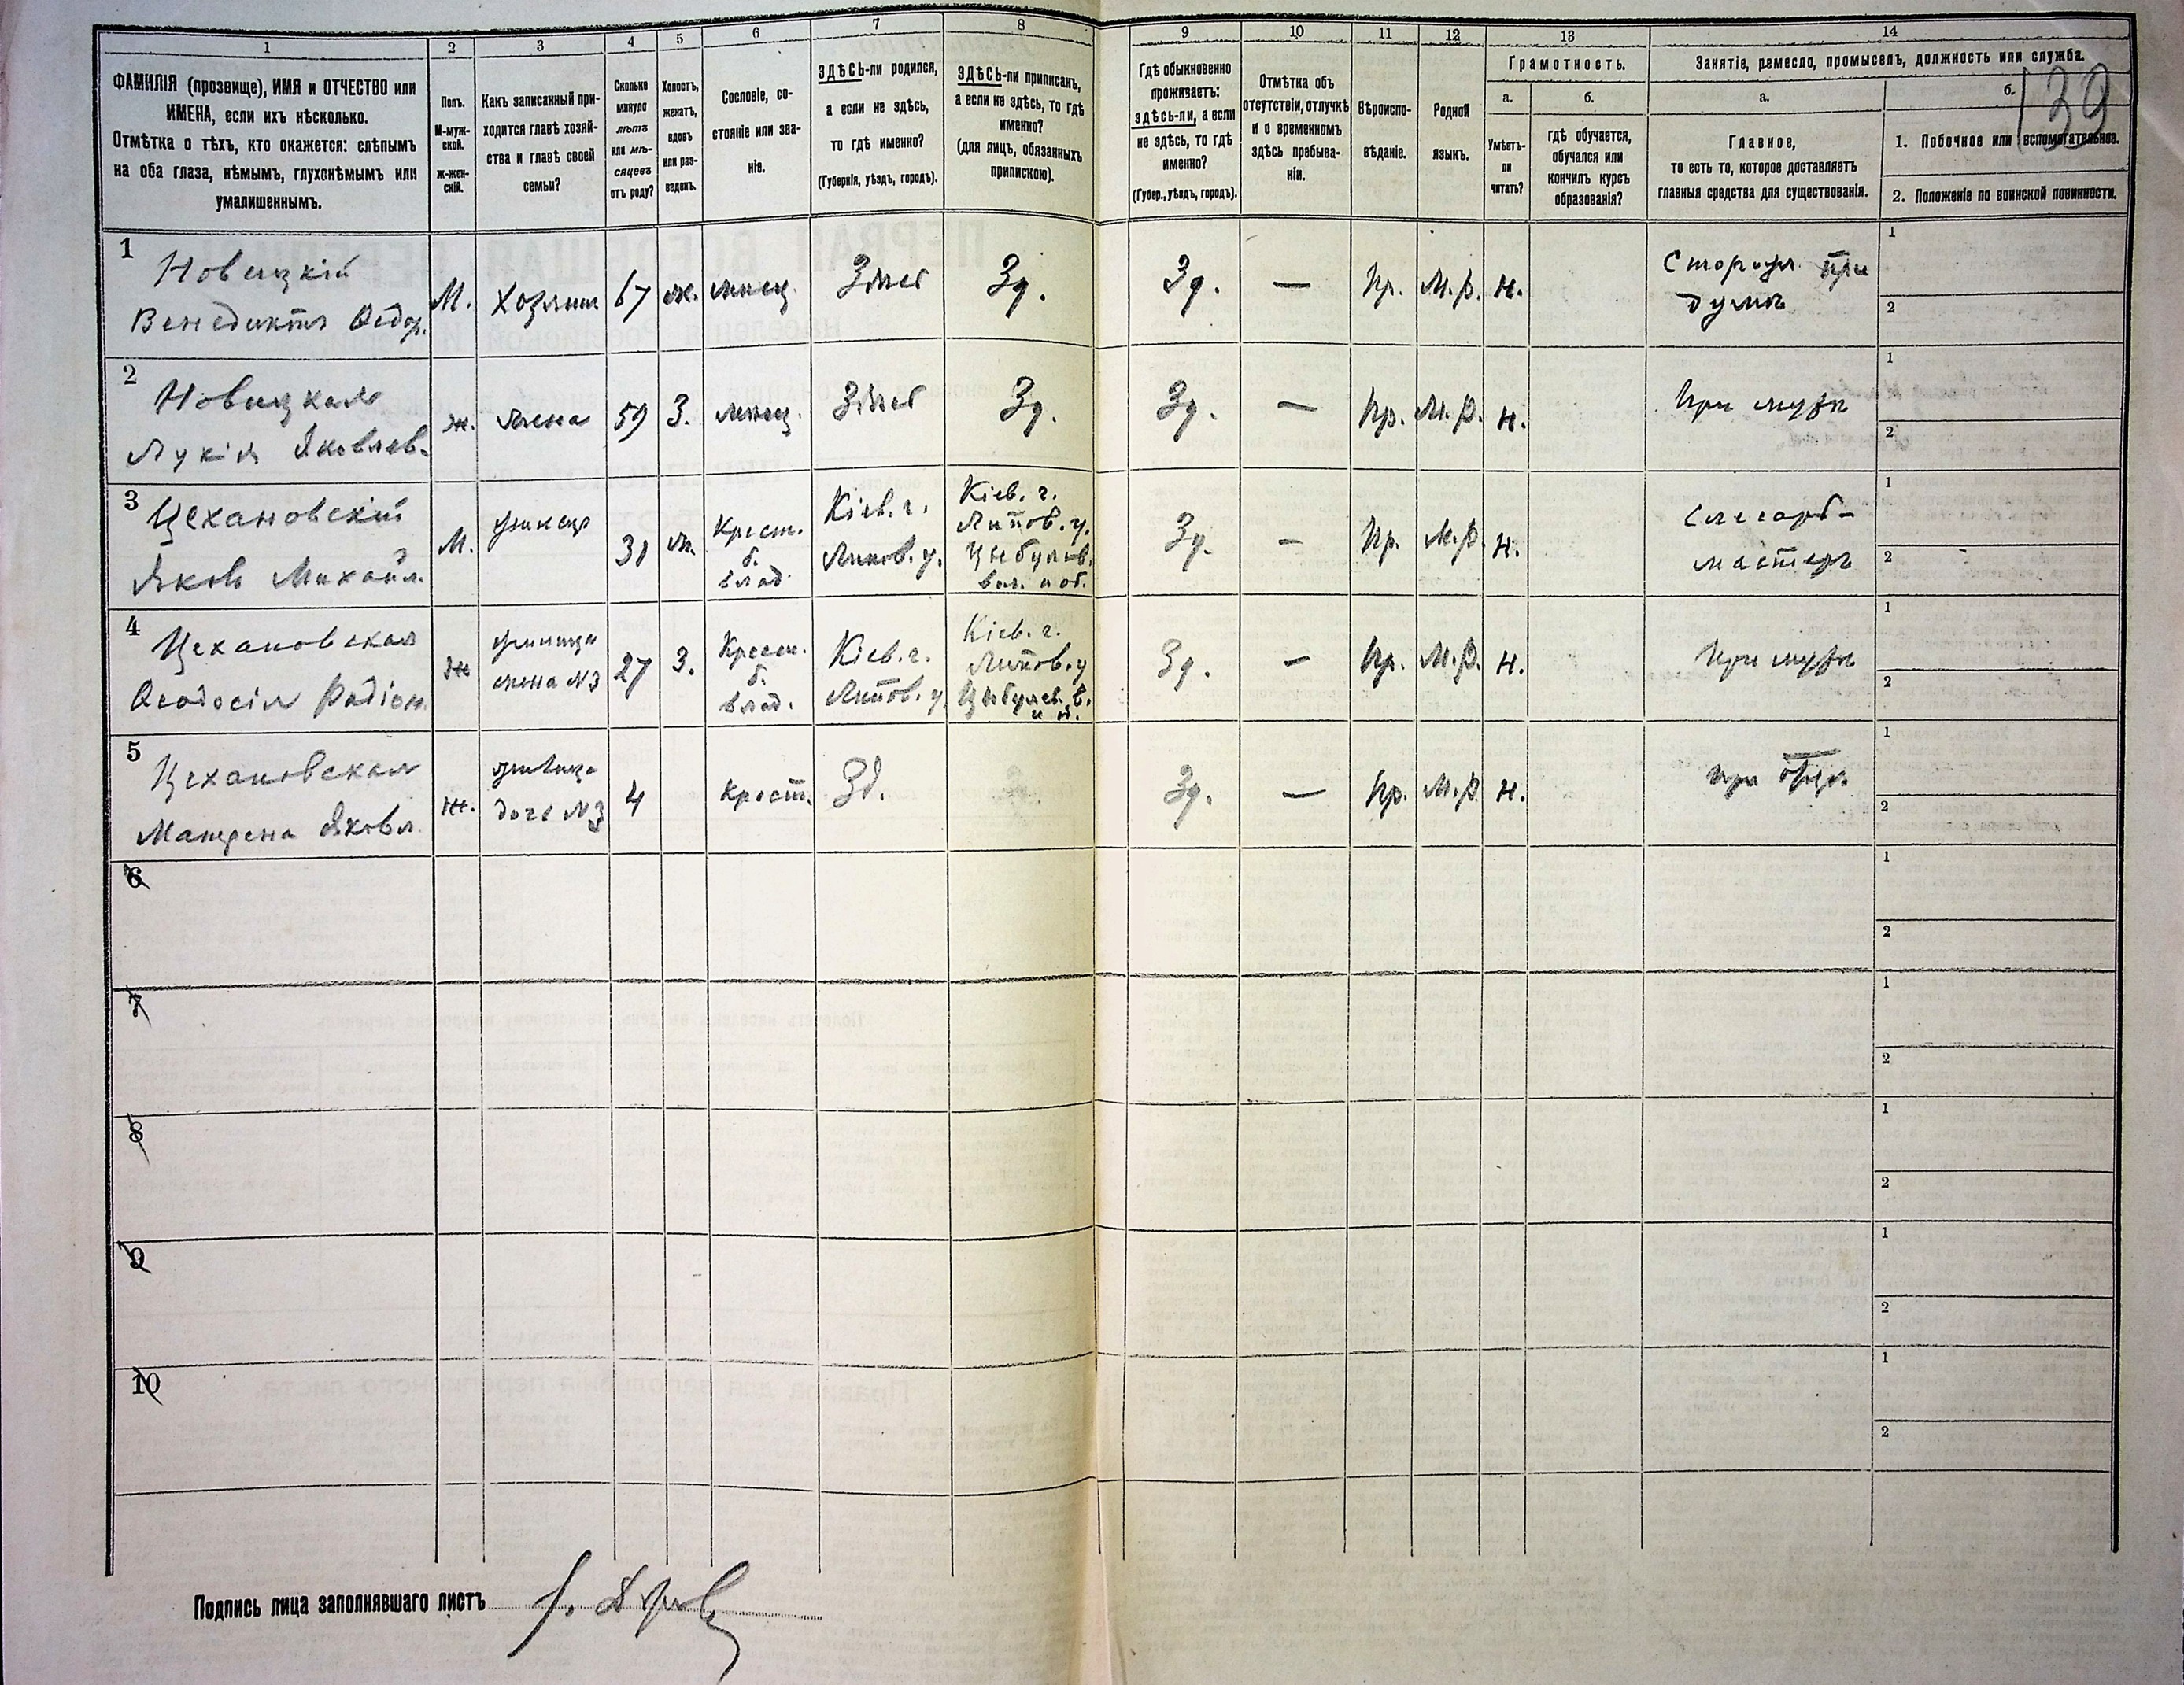 139
1 2 3 4 5 6 7 8 9 10 11 12 13 14
ФАМИЛІЯ (прозвище), ИМЯ и ОТЧЕСТВО или
ИМЕНА, если ихъ нѣсколько.
Отмѣтка о тѣхъ, кто окажется: слѣпымъ
на оба глаза, нѣмымъ, глухонѣмымъ или
умалишеннымъ.
Полъ.
М-муж-
ской.
ж-жен-
скій.
Какъ записанный при-
ходится главѣ хозяй-
ства и главѣ своей
семьи?
Сколько
минуло
лѣтъ
или мѣ-
сяцевъ
отъ роду?
Холостъ,
женатъ,
вдовъ
или раз-
веденъ.
Сословіе, со-
стояніе или зва-
ніе.
ЗДѢСЬ-ли родился,
а если не здѣсь,
то гдѣ именно?
(Губернія, уѣздъ, городъ).
ЗДѢСЬ-ли приписанъ,
а если не здѣсь, то гдѣ
именно?
(для лицъ, обязанныхъ
припискою).
Гдѣ обыкновенно
проживаетъ:
здѣсь-ли, а если
не здѣсь, то гдѣ
именно?
(Губер., уѣздъ, городъ).
Отмѣтка объ
отсутствіи, отлучкѣ
и о временномъ
здѣсь пребыва-
ніи.
Вѣроиспо-
вѣданіе.
Родной
языкъ.
Грамотность.
а.
Умѣетъ-
ли
читать?
б.
гдѣ обучается,
обучался или
кончилъ курсъ
образованія?
Занятіе, ремесло, промыселъ, должность или служба.
а.
Главное,
то есть то, которое доставляетъ
главныя средства для существованія.
б.
1. Побочное или вспомогательное.
2. Положеніе по воинской повинности.
1
Новицкій
Венедиктъ Ѳедор.
М.
Хозяинъ
67
ж.
мѣщ.
Здѣсь
Зд.
Зд.
—
Пр.
М.р.
н.
Сторожъ при
думѣ
1
2
2
Новицкая
Лукія Яковлев.
Ж.
жена
59
З.
мѣщ.
Здѣсь
Зд.
Зд.
—
Пр.
М.р.
н.
При мужѣ
1
2
3
Цехановскій
Яковъ Михайл.
М.
31
ж.
Крест.
б.
влад.
Кіев. г.
Липов. у.
Кіев. г.
Липов. у.
Цыбулев.
вол. и об.
Зд.
—
Пр.
М.р.
н.
Слесарь-
мастеръ
1
2
4
Цехановская
Ѳеодосія Радіон.
Ж
жена №3
27
З.
Крест.
б.
влад.
Кіев. г.
Липов. у.
Кіев. г.
Липов. у
Цыбулев. в.
и об.
Зд.
—
Пр.
М.р.
н.
При мужѣ
1
2
5
Цехановская
Матрена Яковл.
Ж.
дочь №3
4
Крест.
Зд.
Зд.
—
Пр.
М.р.
н.
при отцѣ
1
2
6
1
2
7
1
2
8
1
2
9
1
2
10
1
2
Подпись лица заполнявшаго листъ